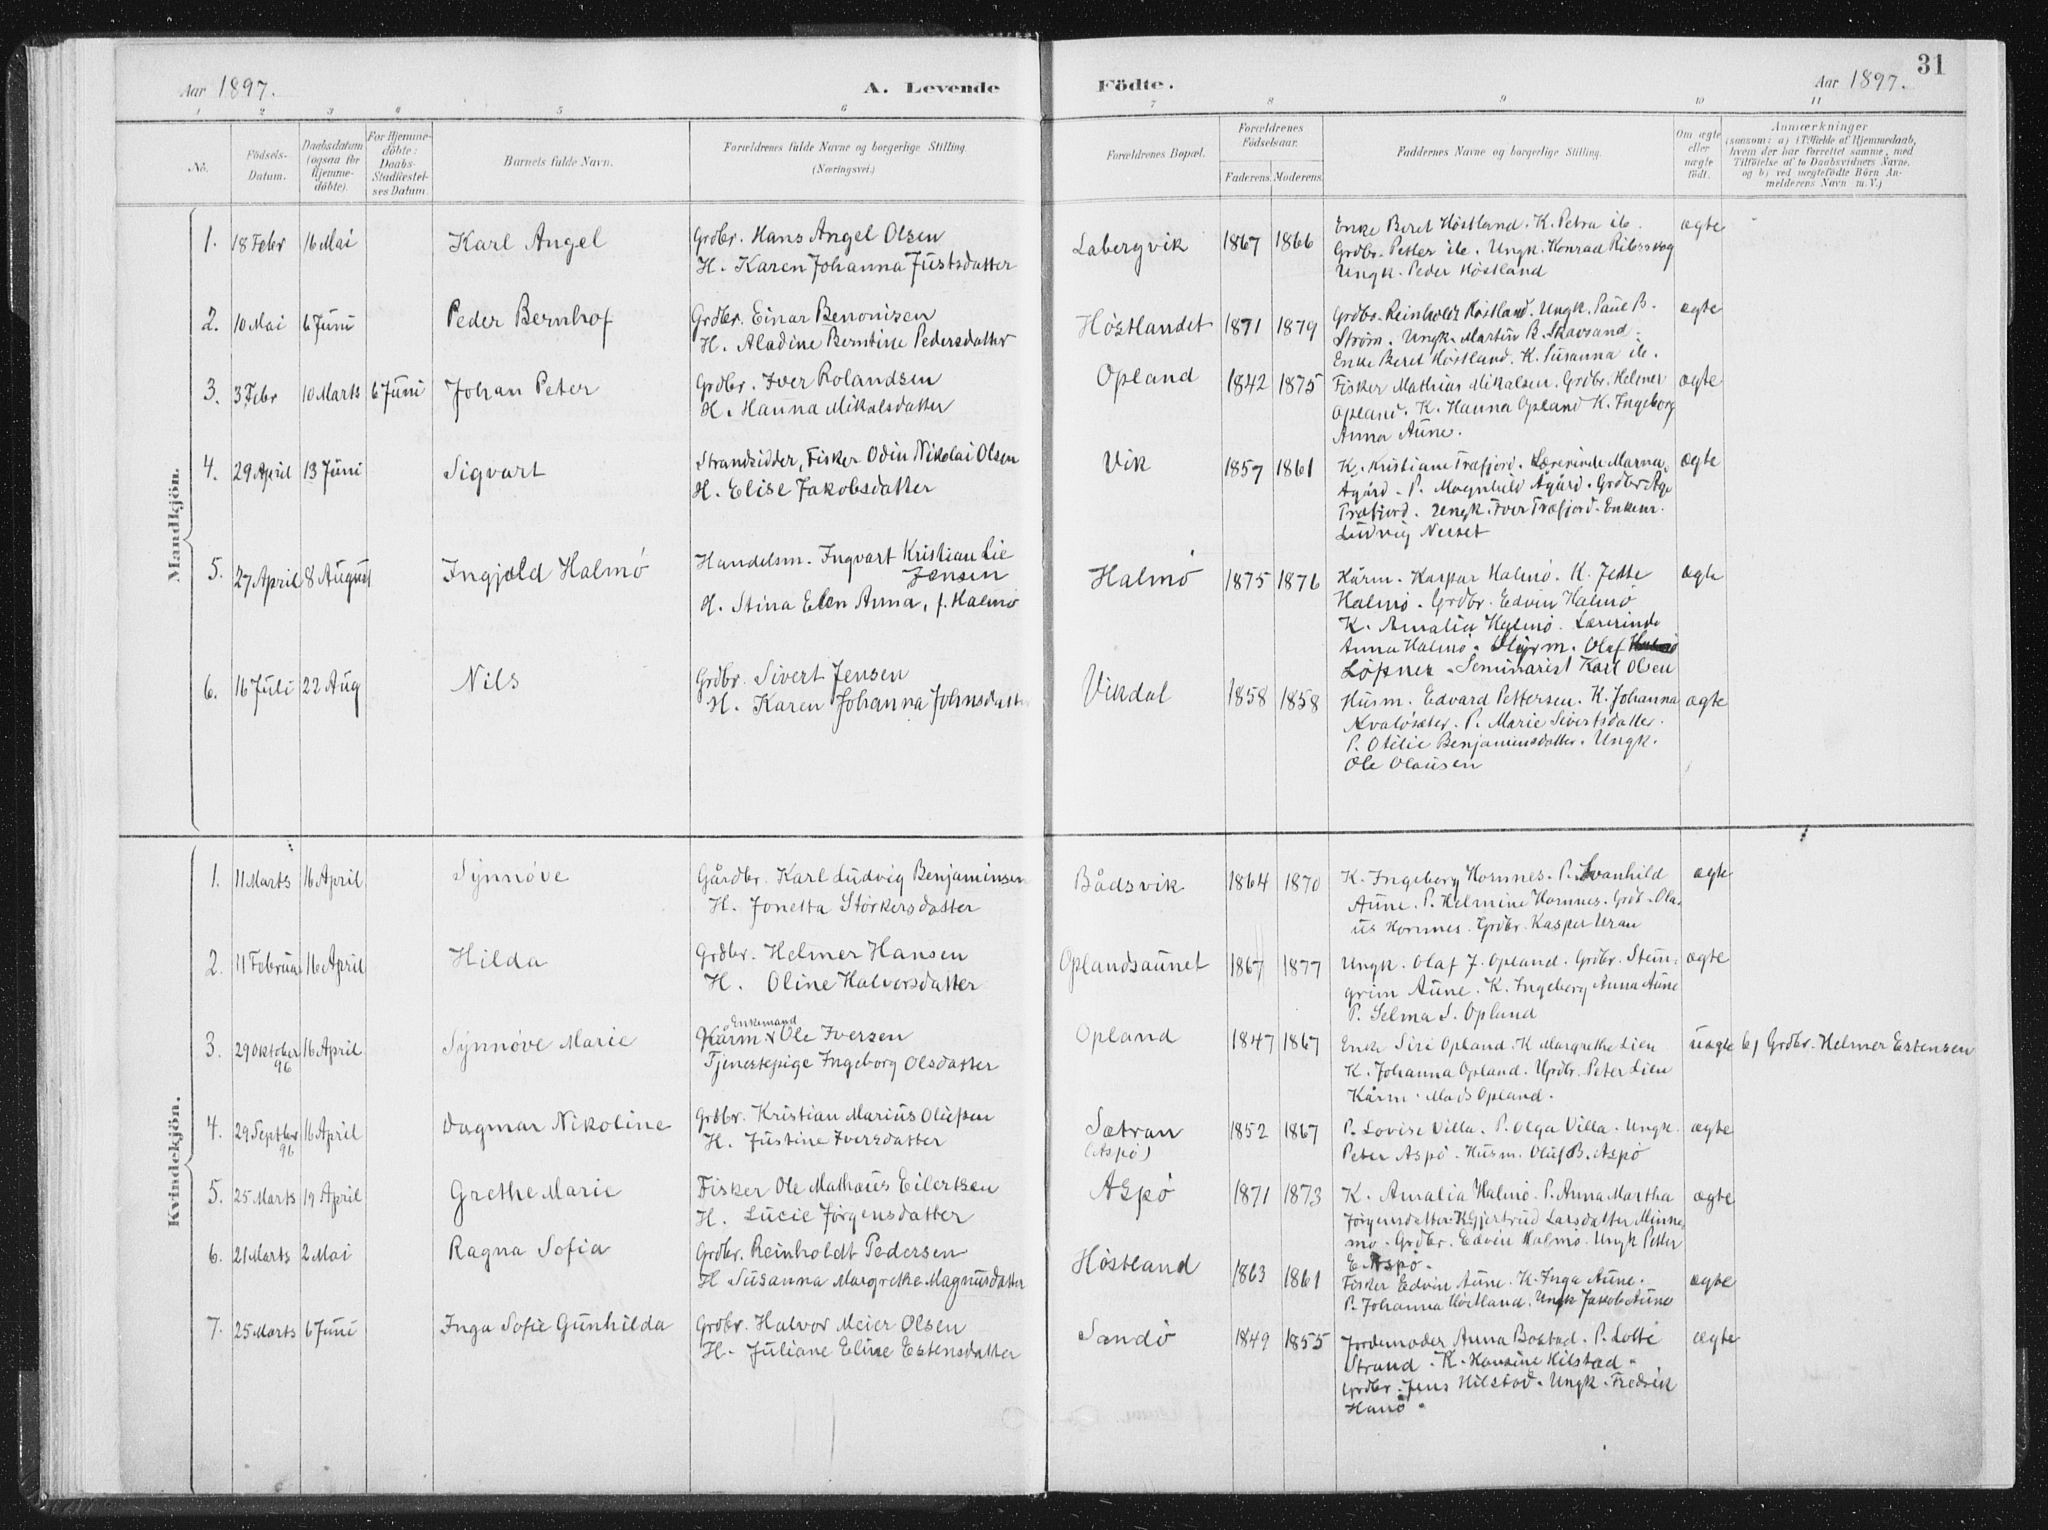 31
Aar 1897. A. Levende Födte. Aar 1897.
1 2 3 4 5 6 7 8 9 10 11
No. Födsels-Datum. Daabsdatum (ogsaa for Hjemme-döbte). For Hjemme-döbte: Daabs-Stadfæstel-ses Datum. Barnets fulde Navn. Forældrenes fulde Navne og borgerlige Stilling (Næringsvei.) Forældrenes Bopæl. Forældrenes Födselsaar. Faderens. Moderens. Faddernes Navne og borgerlige Stilling. Om ægte eller uægte født. Anmærkninger (saasom: a) i Tilfælde af Hjemmedaab, hvem der har forrettet samme, med Tilföielse af to Daabsvidners Navne, og b) ved uægtefödte Börn An-melderens Navn m. V.)
Mandkjön.
1. 18 Febr 16 Mai Karl Angel Grdbr. Hans Angel Olsen Labergvik 1867 1866 Enke Beret Høstland. K. Petra ib. ægte
H. Karen Johanna Justsdatter Grdbr. Petter ib. Ungk. Konrad Ribersvog
Ungk. Peder Høstland
2. 10 Mai 6 Juni Peder Bernhof Grdbr. Einar Benonisen Høstlandet 1871 1879 Grdbr. Reinholdt Høstland. Ungk. Paul B. ægte
H. Aladine Berntine Pedersdatter Strøm. Ungk. Martin B. Skavsand.
Enke Beret Høstland. K. Susanna ib.
3. 3 Febr 10 Marts 6 Juni Johan Peter Grdbr. Iver Rolandsen Opland 1842 1875 Fisker Mathias Mikalsen. Grdbr. Helmer ægte
H. Hanna Mikalsdatter Opland. K. Hanna Opland K. Ingeborg
Anna Aune.
4. 29 April 13 Juni Sigvart Strandsidder, Fisker Odin Nikolai Olsen Vik 1857 1861 K. Kristiane Træfjord. Lærerinde Marna ægte
H. Elise Jakobsdatter Agård. P. Magnhild Agård. Grdbr Age
Træfjord. Ungk. Iver Træfjord. Enkem.
Ludvig Nerset
5. 27 April 8 August Ingjæld Halmø Handelsm. Ingvart Kristian Lie Jensen Halmø 1875 1876 Kårm. Kaspar Halmø. K. Jette ægte
H. Stina Elen Anna, f. Halmø Halmø. Grdbr. Edvin Halmø
K. Amalia Halmø. Lærerinde
Anna Halmø. Olaf
Løfsner. Seminarist Karl Olsen
6. 16 Juli 22 Aug Nils Grdbr. Sivert Jensen Vikdal 1858 1858 Husm. Edvard Pettersen. K. Johanna ægte
H. Karen Johanna Johnsdatter Kvaløsæter. P. Marie Sivertsdatter.
P. Otelie Benjaminsdatter. Ungk.
Ole Olausen
Kvindekjön.
1. 11 Marts 16 April Synnøve Gårdbr. Karl Ludvig Benjaminsen Bådsvik 1864 1870 K. Ingeborg Hornnes. P. Svanhild ægte
H. Jonetta Størkersdatter Aune. P. Helmine Hornnes. Grdb. Ola-
us Hornnes. Grdbr. Kasper Uran
2. 11 Februar 16 April Hilda Grdbr. Helmer Hansen Oplandsaunet 1867 1877 Ungk. Olaf J. Opland. Grdbr. Stein- ægte
H. Oline Halvorsdatter grim Aune. K. Ingeborg Anna Aune
P. Selma S. Opland
3. 29 Oktober 96 16 April Synnøve Marie Kårm. Enkemand Ole Iversen Opland 1847 1867 Enke Siri Opland. K Margrethe Lien uægte b) Grdbr. Helmer Estensen
Tjenestepige Ingeborg Olsdatter K. Johanna Opland. Grdbr. Peter Lien
Kårm. Mads Opland.
4. 29 Septbr 96 16 April Dagmar Nikoline Grdbr. Kristian Marius Olufsen Sætran 1852 1867 P. Lovise Villa. P. Olga Villa. Ungk. ægte
H. Justine Iversdatter (Aspø) Peter Aspø. Husm. Oluf B. Aspø
5. 25 Marts 19 April Grethe Marie Fisker Ole Mathæus Eilertsen Aspø 1871 1873 K. Amalia Halmø. P. Anna Martha ægte
H. Lucie Jørgensdatter Jørgensdatter. K Gjertrud Larsdatter Minne-
mo. Grdbr. Edvin Halmø. Ungk Petter
E Aspø.
6. 21 Marts 2 Mai Ragna Sofia Grdbr. Reinholdt Pedersen Høstland 1863 1861 Fisker Edvin Aune. K. Inga Aune. ægte
H Susanna Margrethe Magnusdatter P. Johanna Høstland. Ungk Jakob Aune
7. 25 Marts 6 Juni Inga Sofie Gunhilda Grdbr. Halvor Meier Olsen Sandø 1849 1855 Jordemoder Anna Bostad. P. Lotte ægte
H. Juliane Eline Estensdatter Strand. K. Hansine Hilstad.
Grdbr. Jens Hilstad. Ungk. Fredrik
Hanø.